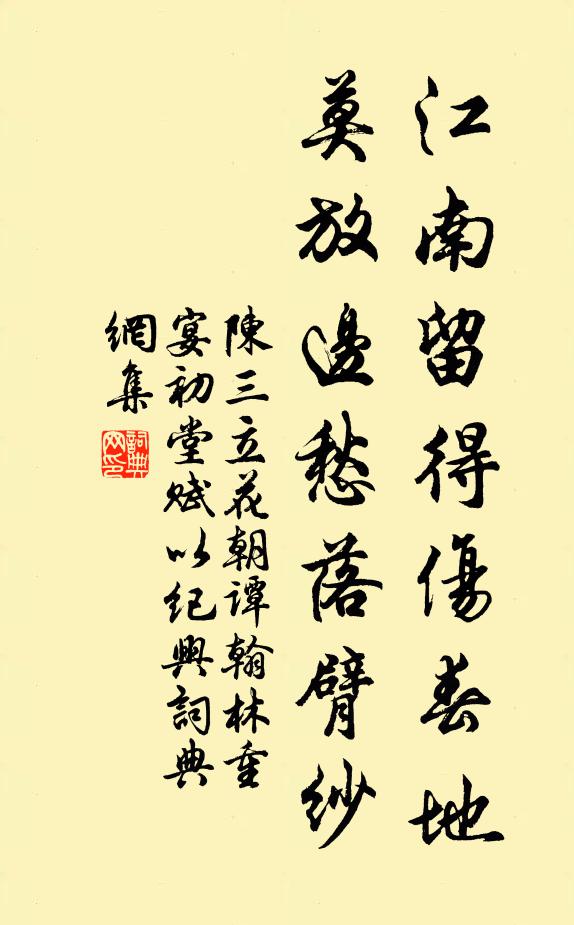 江南留得傷春地
莫放邊愁落臂紗
陳三立花朝譚翰林重
宴初堂賦以紀興詞典
網集
詞典
网印